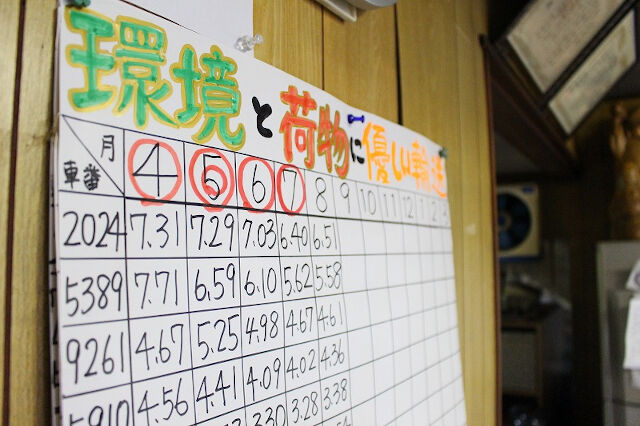 環境と荷物に優しい輸送
月 車番 4 5 6 7 8 9 10 11 12 1 2 3
2024 7.31 7.29 7.03 6.40 6.51
5389 7.71 6.59 6.10 5.62 5.58
9261 4.67 5.25 4.98 4.67 4.61
5910 4.56 4.41 4.09 4.02 4.36
3.30 3.28 3.38